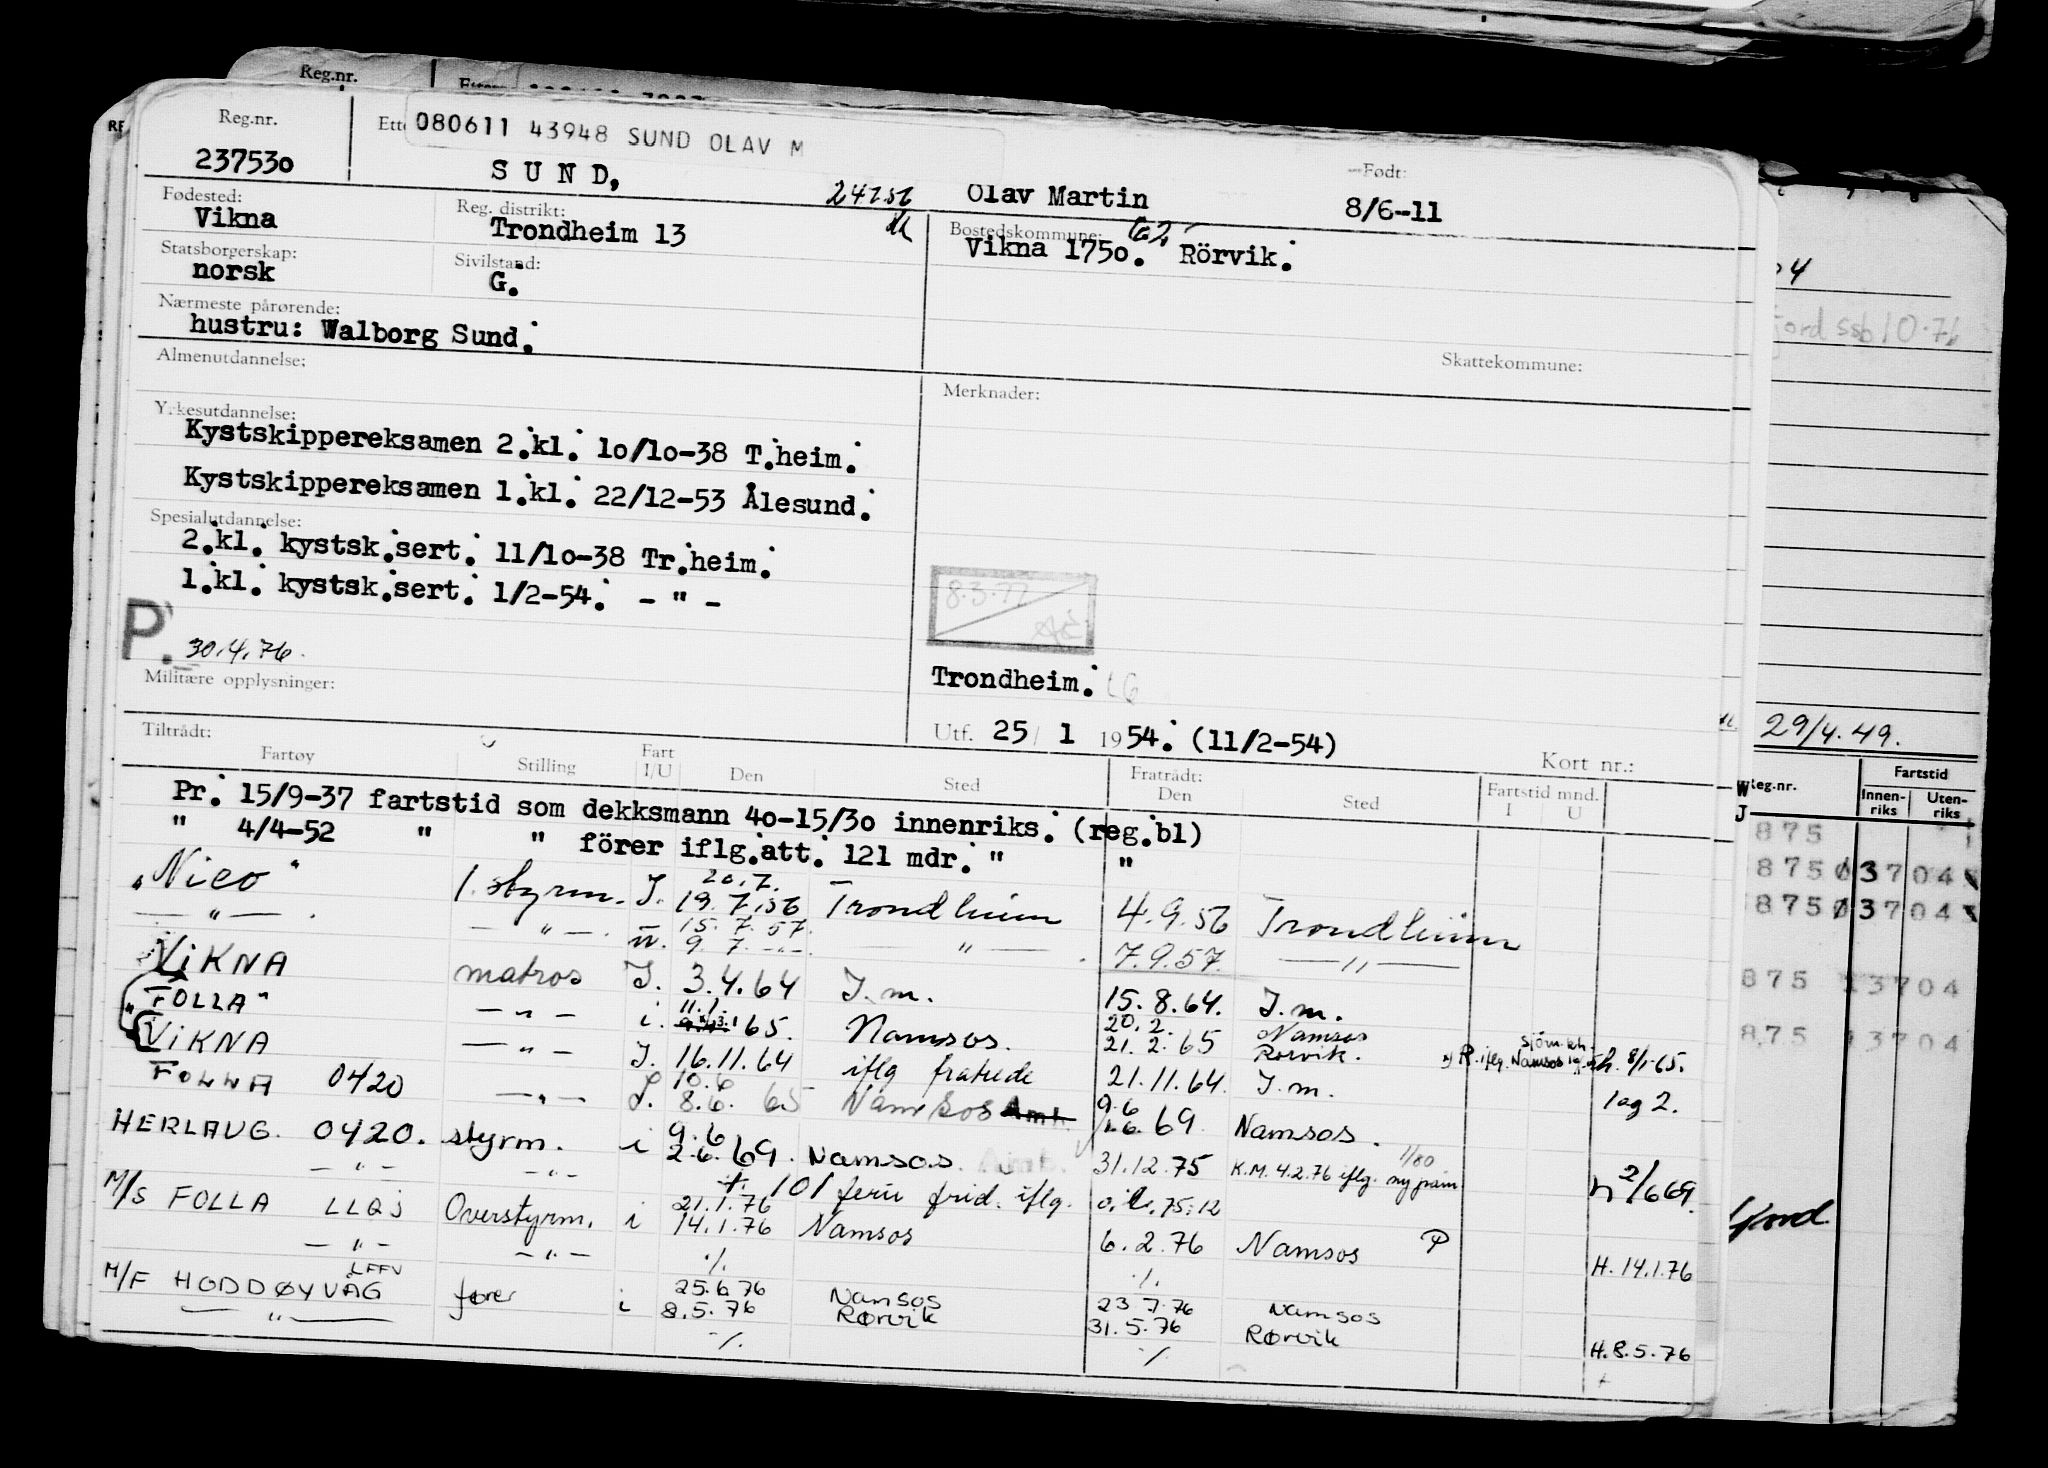 Reg.nr.
080611 43948 SUND OLAV M
Reg.nr.
237530
SUND,
24756
Olav Martin
Født:
8/6-11
Fødested:
Vikna
Reg. distrikt:
Trondheim 13
Bostedskommune:
Vikna 1750. Rörvik.
Statsborgerskap:
norsk
Sivilstand:
G.
Nærmeste pårørende:
hustru: Walborg Sund.
Almenutdannelse:
Skattekommune:
Merknader:
Yrkesutdannelse:
Kystskippereksamen 2.kl. 10/10-38 T.heim.
Kystskippereksamen 1.kl. 22/12-53 Ålesund.
Spesialutdannelse:
2.kl. kystsk.sert. 11/10-38 Tr.heim.
1.kl. kystsk.sert. 1/2-54. - " -
8.3.77
P.
30.4.76.
Militære opplysninger:
Trondheim.
Utf. 25/ 1 1954. (11/2-54)
Kort nr.:
Tiltrådt:
Fartøy Stilling Fart I/U Den Sted
Fratrådt:
Den Sted Fartstid mnd. I U
Pr. 15/9-37 fartstid som dekksmann 40-15/30 innenriks. (reg.bl)
" 4/4-52 " " förer iflg.att. 121 mdr. " "
20.7.
"Nico" 1. styrm. I. 19.7.56 Trondheim 4.9.56 Trondheim
15.7.57
— " — — " — 9.7. -"- — " — 7.9.57. — " —
VIKNA matros I. 3.4.64 I.m. 15.8.64. I.m.
11.1. 20.2. Namsos
"FOLLA" — " — i. 65. Namsos. 21.2.65 Rørvik. R.iflg. Namsos 8/1-65.
VIKNA — " — I. 16.11.64 iflg fratrede 21.11.64. I.m. lag 2.
10.6 9.6
FOLLA 0420 — " — I. 8.6. 65 Namsos 69 Namsos.
9.6
HERLAUG. 0420. styrm. i 2.6.69. Namsos. 31.12.75 K.M. 4.2.76 iflg. 2/6 69.
— " — — " — 101 ferie frid. iflg. 75:12
21.1.76
M/S FOLLA LLQJ Overstyrm. i 14.1.76 Namsos 6.2.76 Namsos P H. 14.1.76
— " — — " — ./. ./.
LFFV 25.6.76 Namsos 23.7.76 Namsos
M/F HODDØYVÅG fører i 8.5.76 Rørvik 31.5.76 Rørvik H. 8.5.76
— " — ./. ./.
4
jord ssb 10.76
29/4.49.
Reg.nr. Fartstid
Innenriks Utenriks
875
875 Ø 3704
875 Ø 3704
875 13704
875 13704